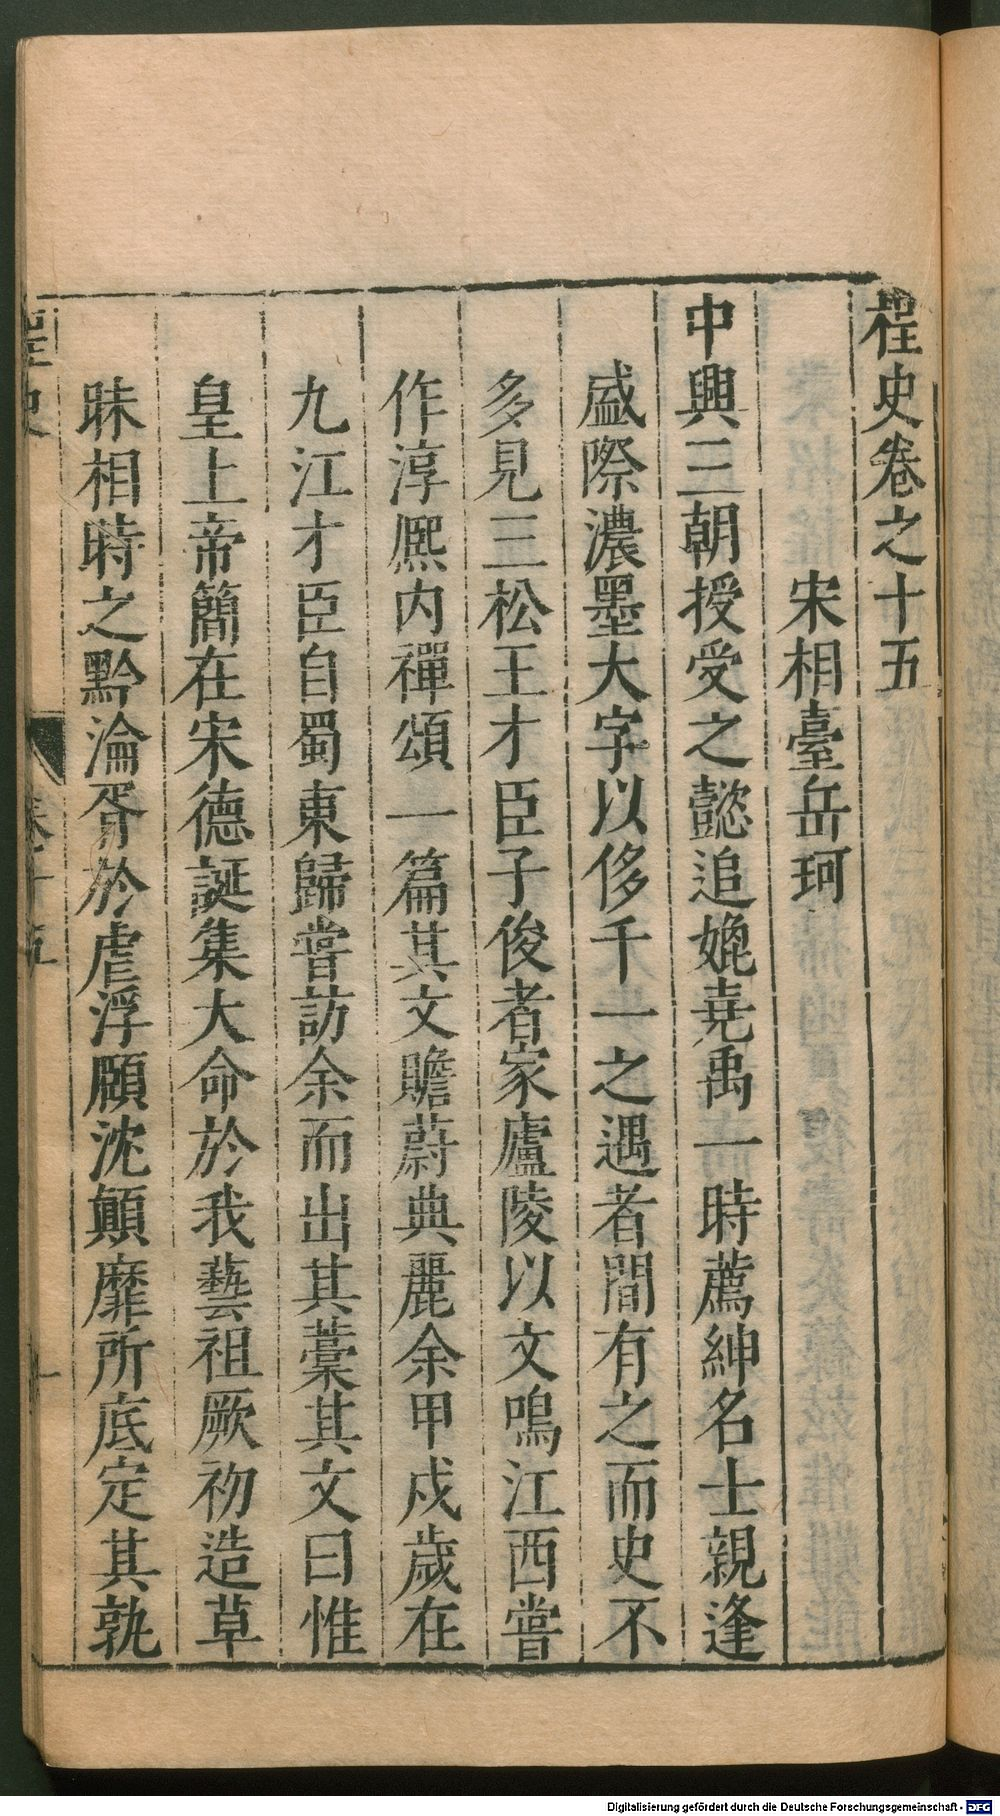 桯史卷之十五
宋相臺岳珂
中興三朝授受之懿追媲堯禹一時薦紳名士親逢
盛際濃墨大字以侈千一之遇者間有之而史不
多見三松王才臣子俊者家廬陵以文鳴江西嘗
作淳熈内禪頌一篇其文贍蔚典麗余甲戍歳在
九江才臣自蜀東歸嘗訪余而出其藁其文曰惟
皇上帝簡在宋德誕集大命於我藝祖厥初造草
昧相時之黔淪胥於虐浮願沈顛靡所底定其孰
桯史
卷十五
一
Digitalisierung gefördert durch die Deutsche Forschungsgemeinschaft - DFG